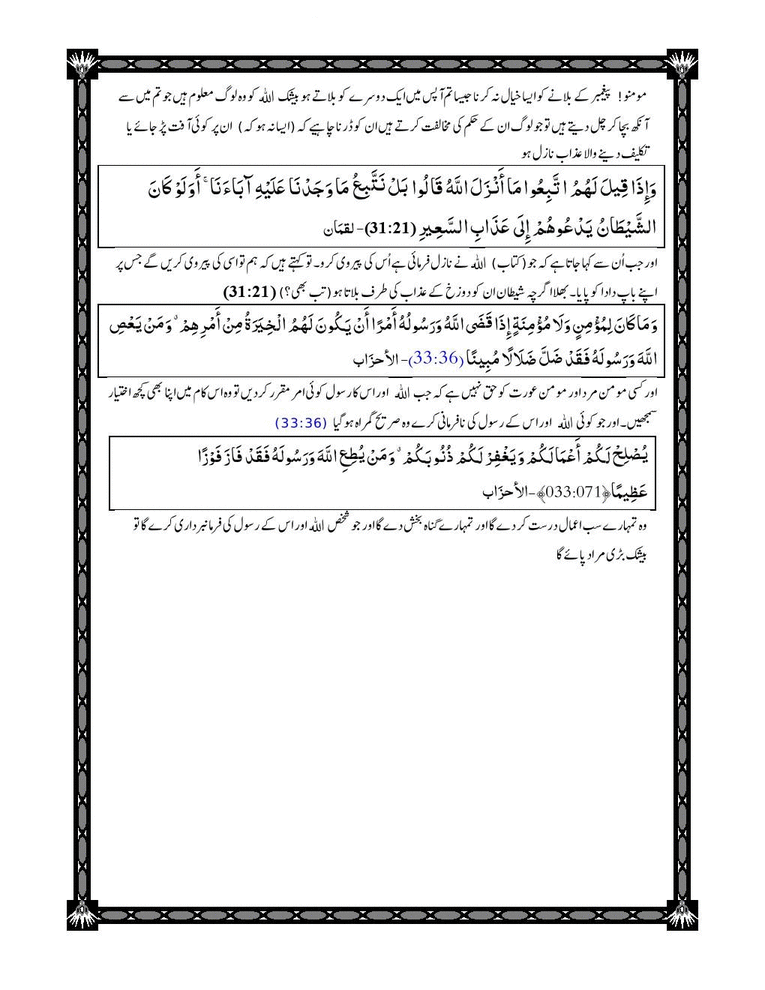 مومنو! پیغمبر کے بلانے کو ایسا خیال نہ کرنا جیسا تم آپس میں ایک دوسرے کو بلاتے ہو بیشک اللہ کو وہ لوگ معلوم ہیں جو تم میں سے
آنکھ بچا کر چل دیتے ہیں تو جو لوگ ان کے حکم کی مخالفت کرتے ہیں ان کو ڈرنا چاہیے کہ (ایسا نہ ہو کہ) ان پر کوئی آفت پڑ جائے یا
تکلیف دینے والا عذاب نازل ہو
وَإِذَا قِيلَ لَهُمُ اتَّبِعُوا مَا أَنْزَلَ اللَّهُ قَالُوا بَلْ نَتَّبِعُ مَا وَجَدْنَا عَلَيْهِ آبَاءَنَا ۚ أَوَلَوْ كَانَ
الشَّيْطَانُ يَدْعُوهُمْ إِلَىٰ عَذَابِ السَّعِيرِ (31:21)- لقمَان
اور جب اُن سے کہا جاتا ہے کہ جو (کتاب) اللہ نے نازل فرمائی ہے اُس کی پیروی کرو۔ تو کہتے ہیں کہ ہم تو اسی کی پیروی کریں گے جس پر
اپنے باپ دادا کو پایا۔ بھلا اگرچہ شیطان ان کو دوزخ کے عذاب کی طرف بلاتا ہو (تب بھی؟) (31:21)
وَمَا كَانَ لِمُؤْمِنٍ وَلَا مُؤْمِنَةٍ إِذَا قَضَى اللَّهُ وَرَسُولُهُ أَمْرًا أَنْ يَكُونَ لَهُمُ الْخِيَرَةُ مِنْ أَمْرِهِمْ ۗ وَمَنْ يَعْصِ
اللَّهَ وَرَسُولَهُ فَقَدْ ضَلَّ ضَلَالًا مُبِينًا (33:36)- الأحزَاب
اور کسی مومن مرد اور مومن عورت کو حق نہیں ہے کہ جب اللہ اور اس کا رسول کوئی امر مقرر کردیں تو وہ اس کام میں اپنا بھی کچھ اختیار
سمجھیں۔ اور جو کوئی اللہ اور اس کے رسول کی نافرمانی کرے وہ صریح گمراہ ہوگیا (33:36)
يُصْلِحْ لَكُمْ أَعْمَالَكُمْ وَيَغْفِرْ لَكُمْ ذُنُوبَكُمْ ۗ وَمَنْ يُطِعِ اللَّهَ وَرَسُولَهُ فَقَدْ فَازَ فَوْزًا
عَظِيمًا﴿033:071﴾-الأحزَاب
وہ تمہارے سب اعمال درست کردے گا اور تمہارے گناہ بخش دے گا اور جو شخص اللہ اور اس کے رسول کی فرمانبرداری کرے گا تو
بیشک بڑی مراد پائے گا